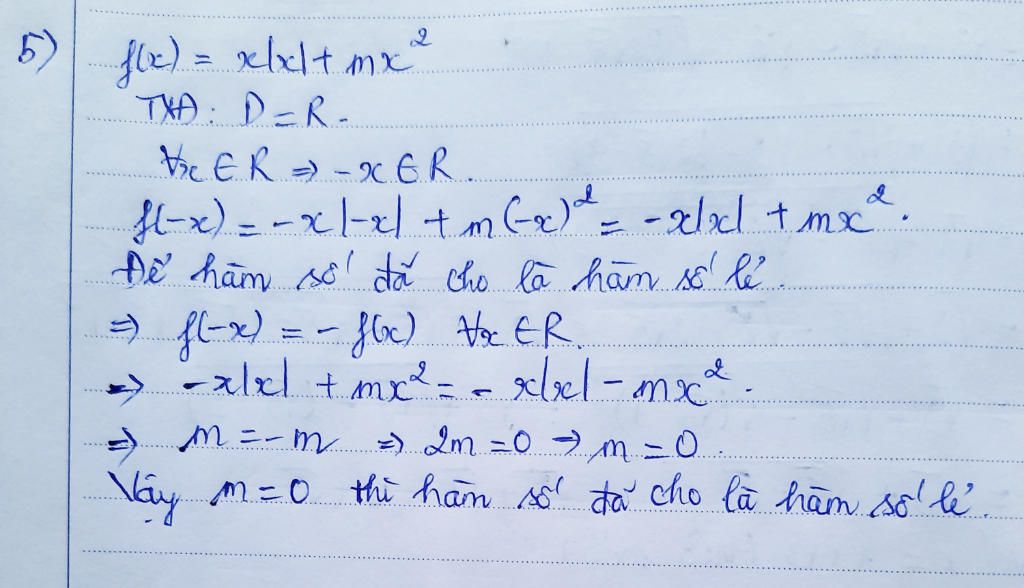 5) f(x) = x|x| + mx²
TXĐ: D = R.
∀x ∈ R ⇒ -x ∈ R.
f(-x) = -x|-x| + m(-x)² = -x|x| + mx².
Để hàm số đã cho là hàm số lẻ.
⇒ f(-x) = - f(x) ∀x ∈ R.
⇒ -x|x| + mx² = - x|x| - mx².
⇒ m = -m ⇒ 2m = 0 → m = 0.
Vậy m = 0 thì hàm số đã cho là hàm số lẻ.